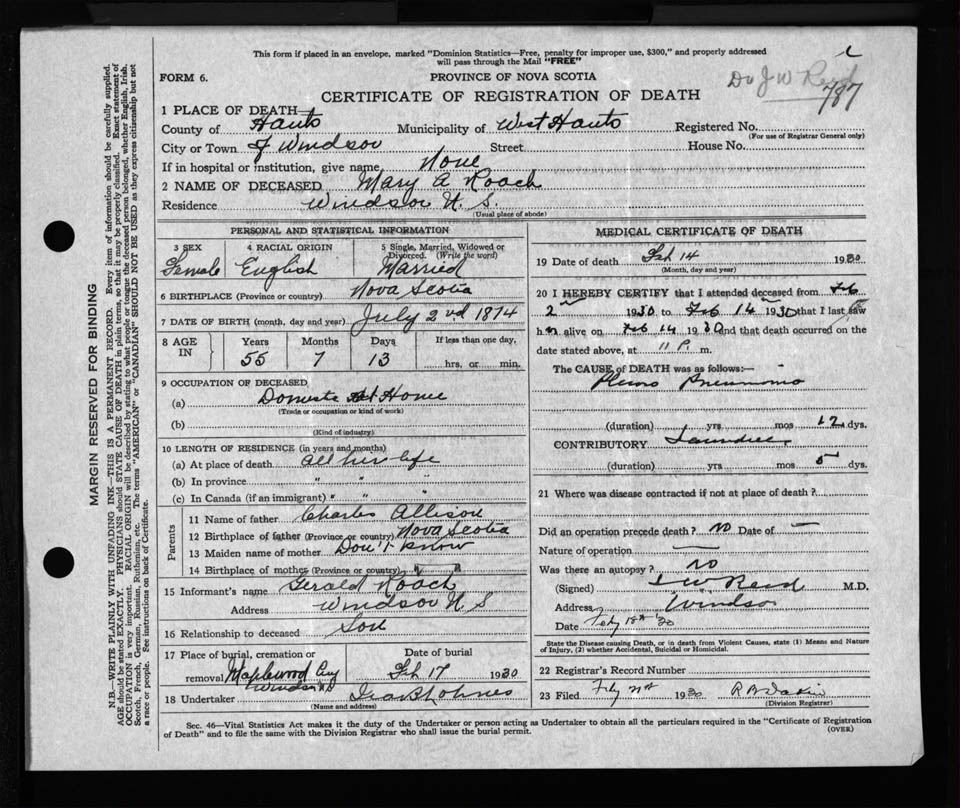 This form if placed in an envelope, marked "Dominion Statistics—Free, penalty for improper use, $300," and properly addressed
will pass through the Mail "FREE"
FORM 6.
PROVINCE OF NOVA SCOTIA
Dr J W Reid
787
CERTIFICATE OF REGISTRATION OF DEATH
1 PLACE OF DEATH—
County of Hants Municipality of West Hants Registered No.
(For use of Registrar General only)
City or Town of Windsor Street House No.
If in hospital or institution, give name None
2 NAME OF DECEASED Mary A Roach
Residence Windsor N. S.
(Usual place of abode)
PERSONAL AND STATISTICAL INFORMATION
3 SEX 4 RACIAL ORIGIN 5 Single, Married, Widowed or
Divorced. (Write the word)
Female English Married
6 BIRTHPLACE (Province or country) Nova Scotia
7 DATE OF BIRTH (month, day and year) July 2nd 1874
8 AGE IN Years Months Days If less than one day,
55 7 13 hrs. or min.
9 OCCUPATION OF DECEASED
(a) Domestic At Home
(Trade or occupation or kind of work)
(b)
(Kind of industry)
10 LENGTH OF RESIDENCE (in years and months)
(a) At place of death all her life
(b) In province " " "
(c) In Canada (if an immigrant) " " "
Parents
11 Name of father Charles Allison
12 Birthplace of father (Province or country) Nova Scotia
13 Maiden name of mother Don't know
14 Birthplace of mother (Province or country) " "
15 Informant's name Gerald Roach
Address Windsor N S
16 Relationship to deceased Son
17 Place of burial, cremation or Date of burial
removal Maplewood Cey Feb 17 1930
Windsor
18 Undertaker
(Name and address)
MEDICAL CERTIFICATE OF DEATH
19 Date of death Feb 14 1930
(Month, day and year)
20 I HEREBY CERTIFY that I attended deceased from Feb
2 1930 to Feb 14 1930 that I last saw
her alive on Feb 14 1930 and that death occurred on the
date stated above, at 11 P. m.
The CAUSE OF DEATH was as follows:—
Pleuro Pneumonia
(duration) yrs mos 12 dys.
CONTRIBUTORY Jaundice
(duration) yrs mos 5 dys.
21 Where was disease contracted if not at place of death?
Did an operation precede death? No Date of —
Nature of operation —
Was there an autopsy? No
(Signed) J W Reid M.D.
Address Windsor
Date Feby 18th '30
State the Disease causing Death, or in death from Violent Causes, state (1) Means and Nature
of Injury, (2) whether Accidental, Suicidal or Homicidal.
22 Registrar's Record Number
23 Filed 1930
(Division Registrar)
Sec. 46—Vital Statistics Act makes it the duty of the Undertaker or person acting as Undertaker to obtain all the particulars required in the "Certificate of Registration
of Death" and to file the same with the Division Registrar who shall issue the burial permit.
(OVER)
MARGIN RESERVED FOR BINDING
N.B.—WRITE PLAINLY WITH UNFADING INK—THIS IS A PERMANENT RECORD. Every item of information should be carefully supplied.
AGE should be stated EXACTLY. PHYSICIANS should STATE CAUSE OF DEATH in plain terms, so that it may be properly classified. Exact statement of
OCCUPATION is very important. RACIAL ORIGIN will be described by stating to what people or tongue the deceased person belonged, whether English, Irish,
Scotch, French, German, Russian, Ruthenian, etc. The terms "AMERICAN" or "CANADIAN" SHOULD NOT BE USED as they express citizenship but not
a race or people. See instructions on back of Certificate.